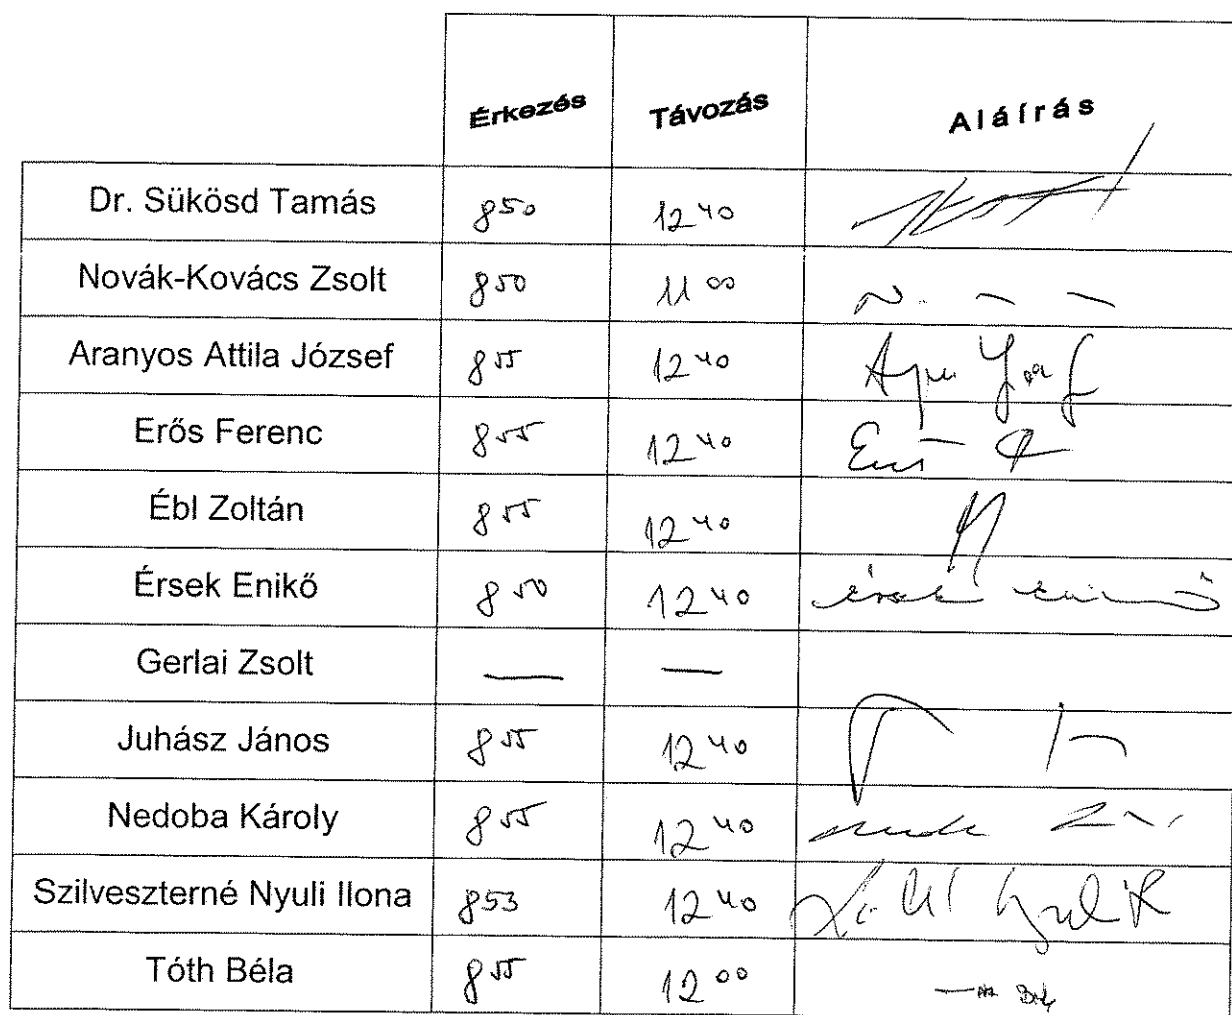 Érkezés Távozás Aláírás
Dr. Sükösd Tamás 8⁵⁰ 12⁴⁰
Novák-Kovács Zsolt 8⁵⁰ 11⁰⁰
Aranyos Attila József 8⁵⁵ 12⁴⁰
Erős Ferenc 8⁵⁵ 12⁴⁰
Ébl Zoltán 8⁵⁵ 12⁴⁰
Érsek Enikő 8⁵⁰ 12⁴⁰ Érsek Enikő
Gerlai Zsolt — —
Juhász János 8⁵⁵ 12⁴⁰
Nedoba Károly 8⁵⁵ 12⁴⁰
Szilveszterné Nyuli Ilona 8⁵³ 12⁴⁰
Tóth Béla 8⁵⁵ 12⁰⁰